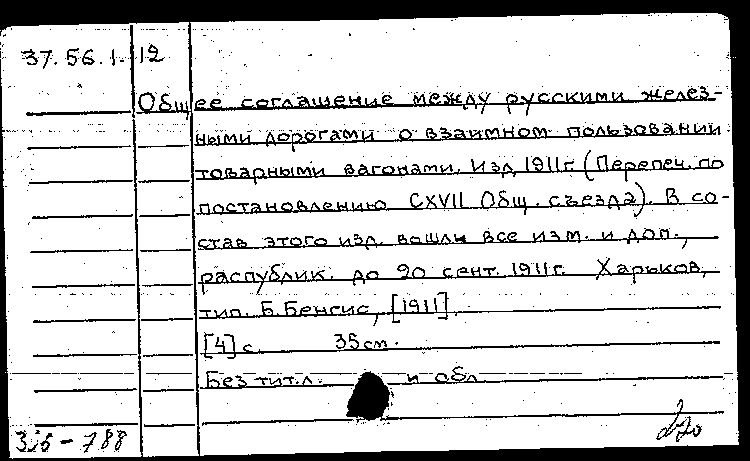 37.56.1.12
Общее соглашение между русскими желез-
ными дорогами о взаимном пользовании
товарными вагонами. Изд. 1911г. (Перепеч. по
постановлению CXVII Общ. съезда). В со-
став этого изд. вошли все изм. и доп.,
распублик. до 20 сент. 1911г. Харьков,
тип. Б. Бенгис, [1911].
[4] с. 35 см.
Без тит. л. и обл.